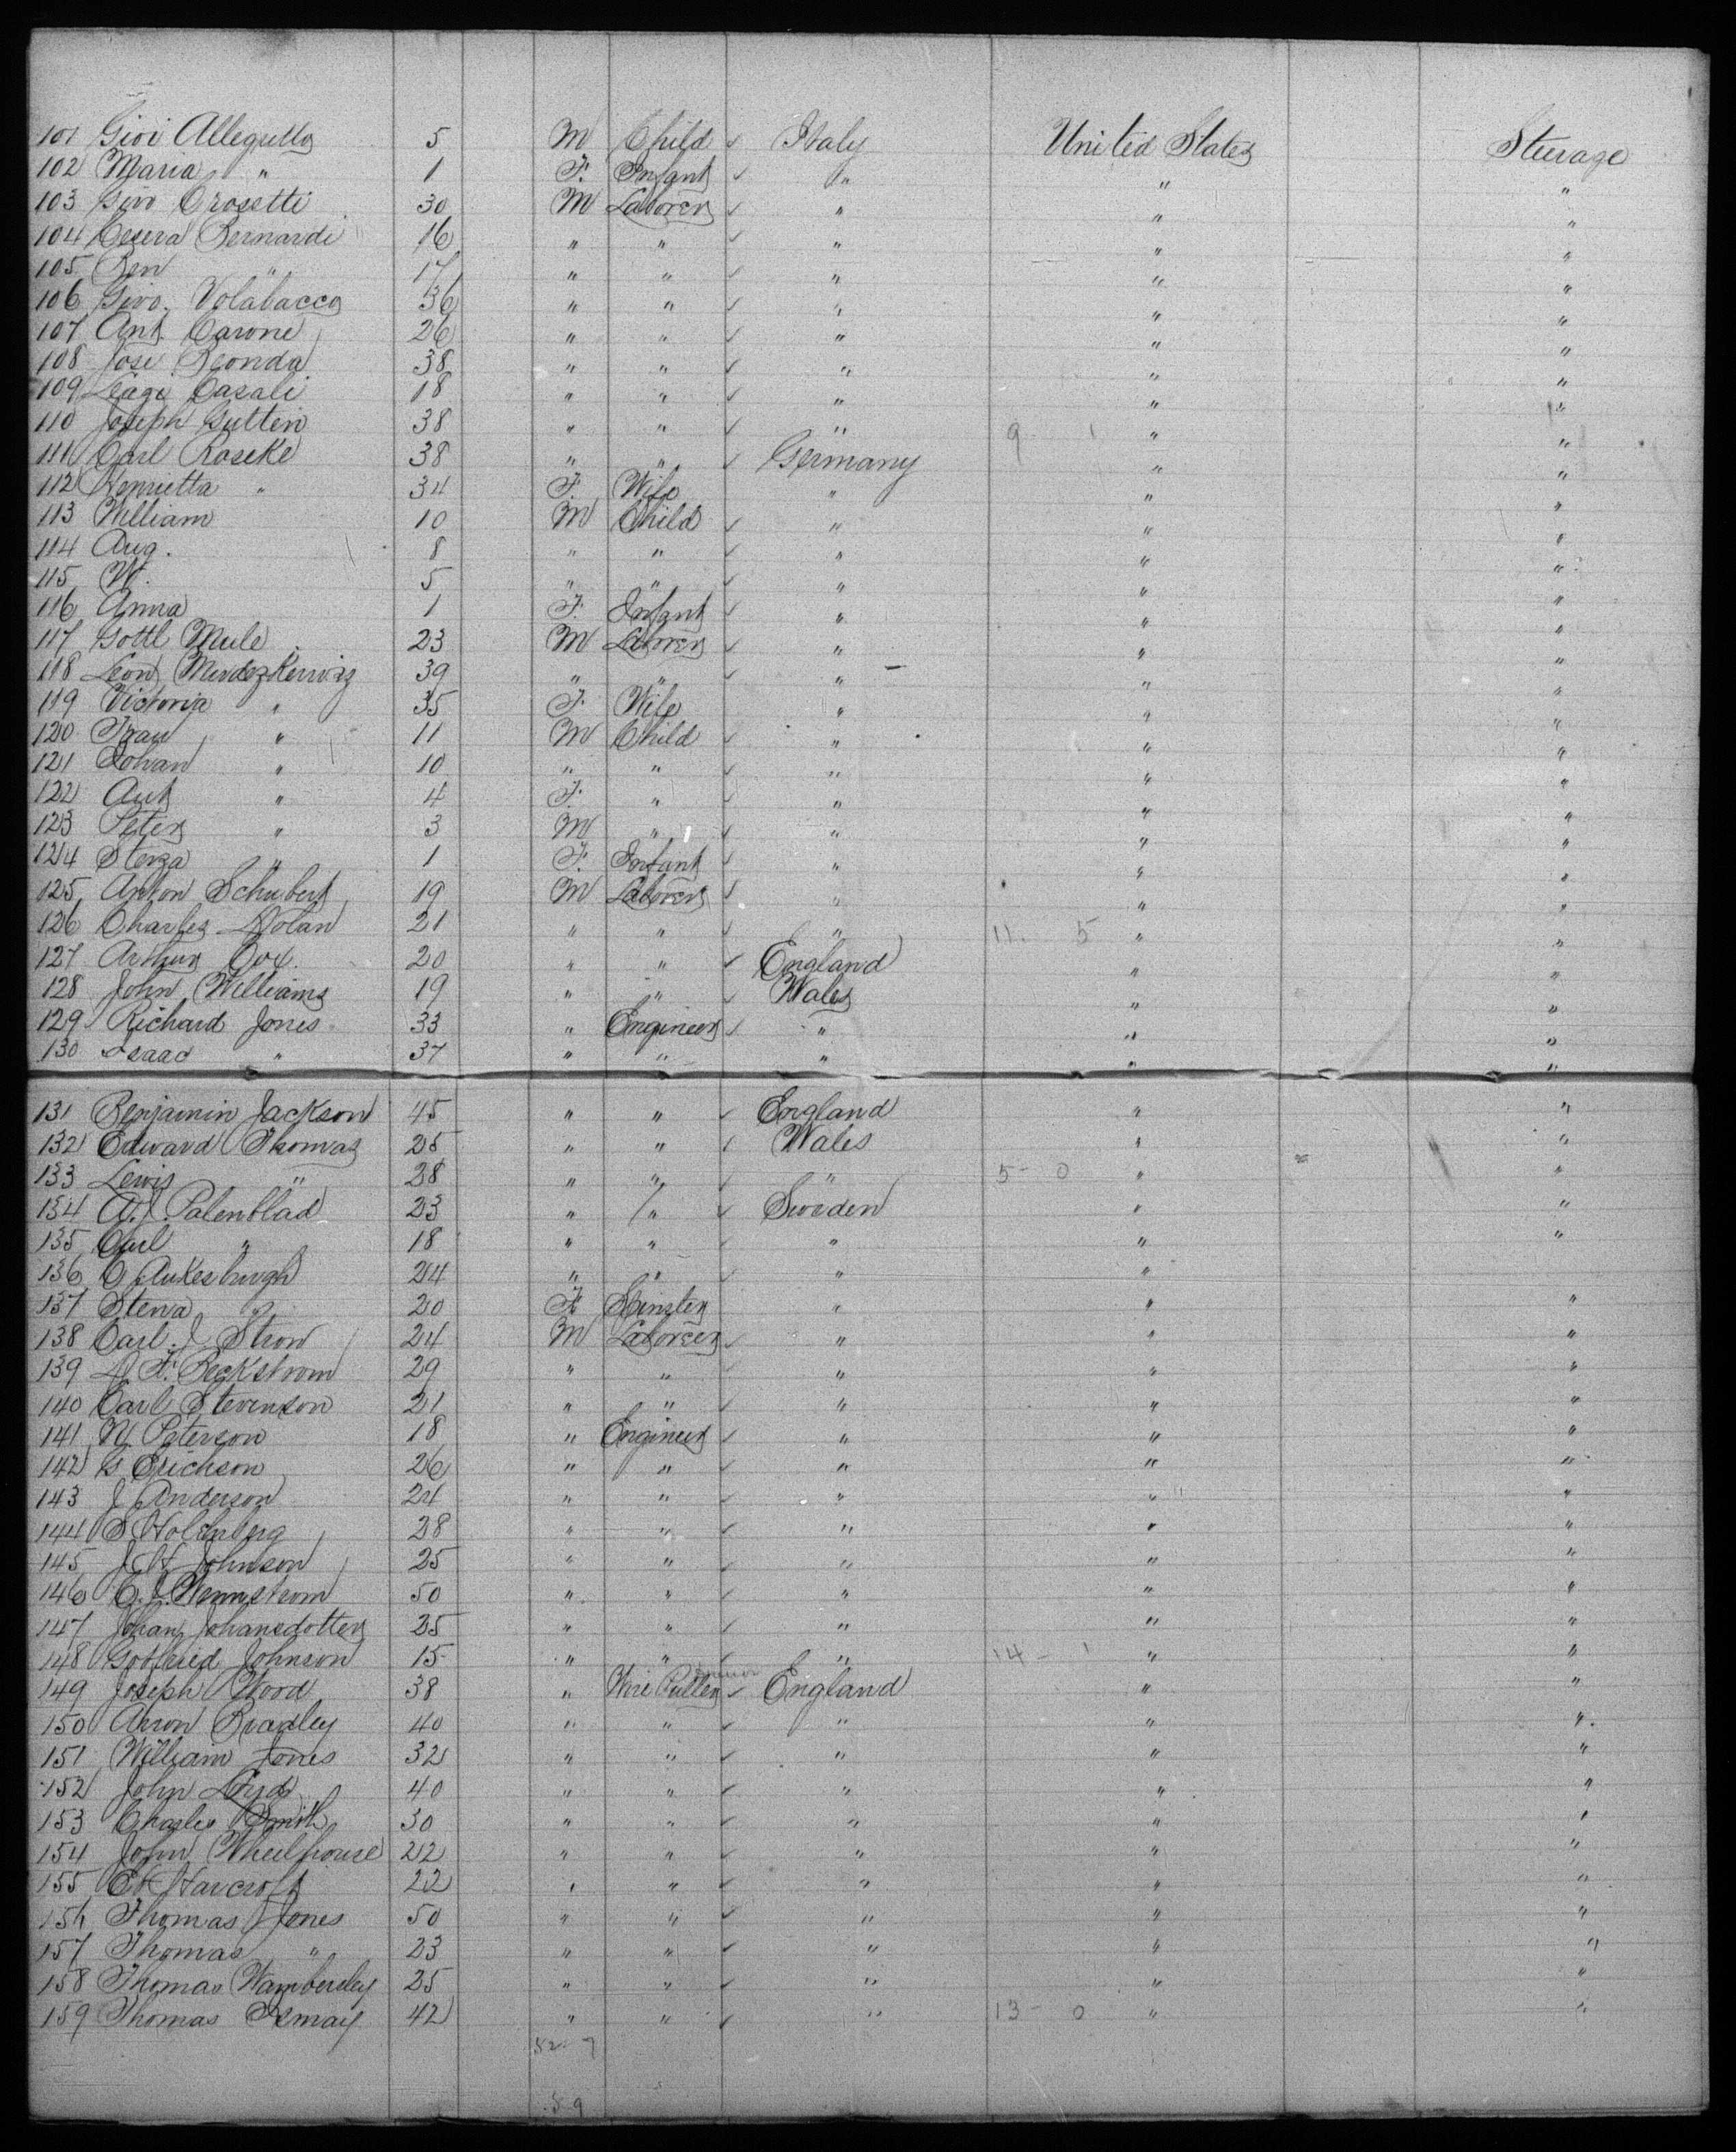 101 Giovi Allegretto 5 M Child ✓ Italy United States Steerage
102 Maria " 1 F. Infant ✓ " " "
103 Giov Crosetti 30 M Laborer ✓ " " "
104 Cesera Bernardi 16 " " ✓ " " "
105 Ben " 17 " " ✓ " " "
106 Giov. Volabacco 36 " " ✓ " " "
107 Ant Carone 26 " " ✓ " " "
108 Jose Reonda 38 " " ✓ " " "
109 Casali 18 " " ✓ " " "
110 Joseph Gutten 38 " " ✓ " 9 1 " "
111 Carl Roseke 38 " " ✓ Germany " "
112 Henrietta " 34 F. Wife " " "
113 William 10 M Child ✓ " " "
114 Aug. 8 " " ✓ " " "
115 W. 5 " " ✓ " " "
116 Anna 1 F. Infant ✓ " " "
117 Gottl Mule 23 M Laborer ✓ " " "
118 Leon 39 " " ✓ " " "
119 Victoria " 35 F. Wife " " "
120 Frau " 11 M Child ✓ " " "
121 Johan " 10 " " ✓ " " "
122 Ant " 4 F. " ✓ " " "
123 Peter " 3 M " ✓ " " "
124 Sterza " 1 F. Infant ✓ " " "
125 Anton Schubert 19 M Laborer ✓ " " "
126 Charles Nolan 21 " " ✓ " 11. 5 " "
127 Arthur Cox. 20 " " ✓ England " "
128 John Williams 19 " " ✓ Wales " "
129 Richard Jones 33 " Engineer ✓ " " "
130 Isaac " 37 " " " " "
131 Benjamin Jackson 45 " " ✓ England " "
132 Edward Thomas 25 " " ✓ Wales " "
133 Lewis " 28 " " ✓ " 5 - 0 " "
134 A. J. Palenblad 23 " " ✓ Sweden " "
135 Carl " 18 " " ✓ " " "
136 C Aukesburgh 24 " " ✓ " "
137 Stena " 20 F Spinster " " "
138 Carl. J Strom 24 M Laborer ✓ " " "
139 A. F. Beckstrom 29 " " ✓ " " "
140 Carl Stevenson 21 " " ✓ " " "
141 N. Peterson 18 " Engineer ✓ " " "
142 G Erickson 26 " " ✓ " " "
143 J Anderson 24 " " ✓ " " "
144 S Holmberg 28 " " ✓ " " "
145 J. H Johnson 25 " " ✓ " " "
146 C. J. Wennstrom 50 " " ✓ " " "
147 Johan Johansdotter 25 " " ✓ " " "
148 Gottfried Johnson 15 " " ✓ " 14 - 1 " "
149 Joseph Wood 38 " Wire Puller ✓ England " "
150 Aaron Bradley 40 " " ✓ " " "
151 William Jones 32 " " ✓ " " "
152 John 40 " " ✓ " " "
153 Charles Smith 30 " " ✓ " " "
154 John Wheelhouse 22 " " ✓ " " "
155 E H Harcroft 22 " " ✓ " " "
156 Thomas Jones 50 " " ✓ " " "
157 Thomas " 23 " " ✓ " " "
158 Thomas Wambersley 25 " " ✓ " " "
159 Thomas Ismay 42 " " ✓ " 13 - 0 " "
52 - 7
59